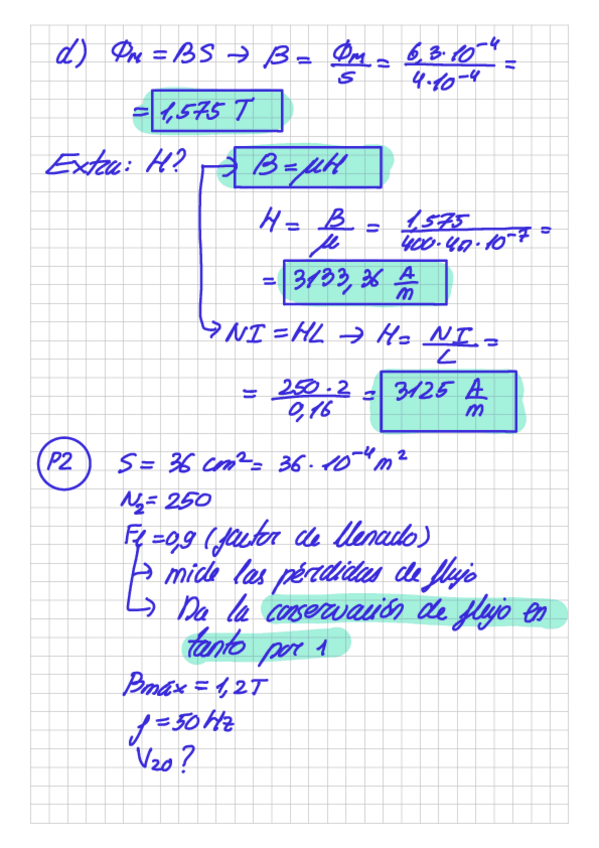 d) Φm = BS → B = Φm/S = 6,3·10⁻⁴/4·10⁻⁴ =
= 1,575 T
Extra: H? → B = μH
H = B/μ = 1,575/400·4π·10⁻⁷ =
= 3133,36 A/m
→ NI = HL → H = NI/L =
= 250·2/0,16 = 3125 A/m
P2 S = 36 cm² = 36·10⁻⁴ m²
N₂ = 250
Fl = 0,9 (factor de llenado)
→ mide las pérdidas de flujo
→ Da la conservación de flujo en
tanto por 1
Bmáx = 1,2 T
f = 50 Hz
V₂₀?